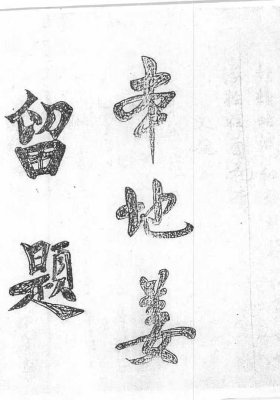 本地姜
留题